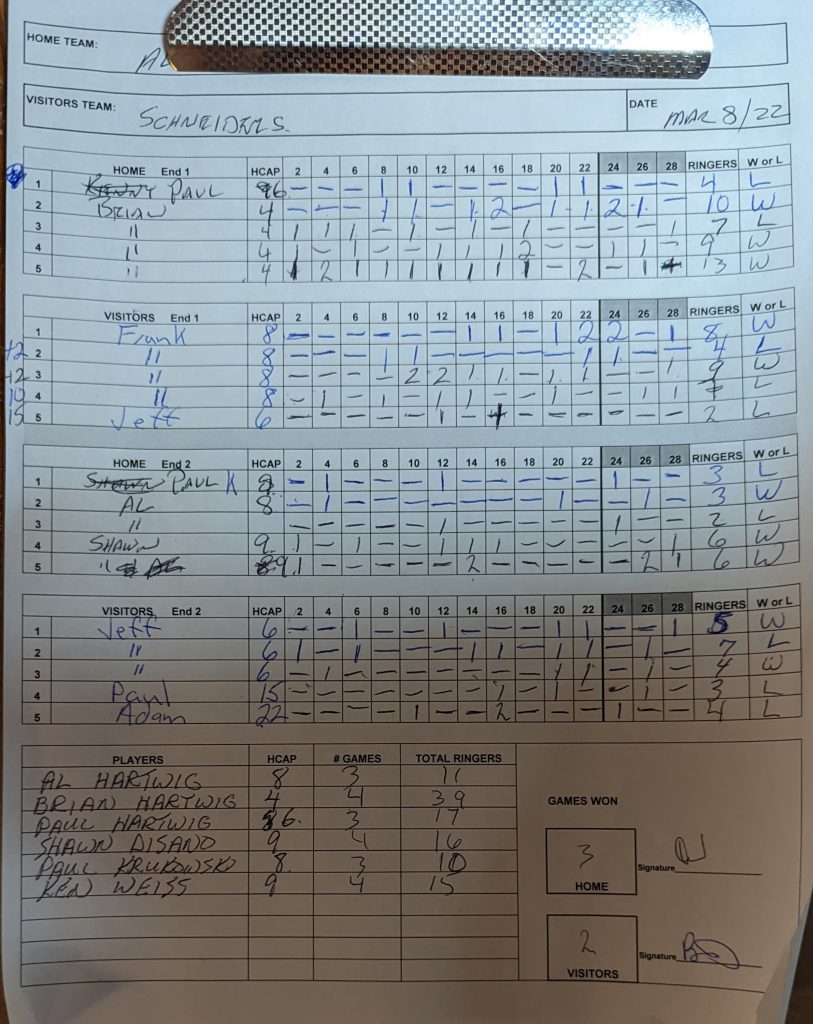 HOME TEAM: AL
VISITORS TEAM: SCHNEIDERS. DATE MAR 8/22
HOME End 1 HCAP 2 4 6 8 10 12 14 16 18 20 22 24 26 28 RINGERS W or L
1 KENNY PAUL 6 – – – 1 1 – – – – 1 1 – – – 4 L
2 BRIAN 4 – – – 1 1 – 1 2 – 1 1 2 1 – 10 W
3 " 4 1 1 1 – 1 – 1 – 1 – – – – 1 7 L
4 " 4 1 – 1 – – 1 1 1 2 – – 1 1 – 9 W
5 " 4 1 2 1 1 1 1 1 1 1 – 2 – 1 13 W
VISITORS End 1 HCAP 2 4 6 8 10 12 14 16 18 20 22 24 26 28 RINGERS W or L
1 Frank 8 – – – – – – 1 1 – 1 2 2 – 1 8 W
+2 2 " 8 – – – 1 1 – – – – – 1 1 – – 4 L
+2 3 " 8 – – – – 2 2 1 1 – 1 1 – – 1 9 W
10 4 " 8 – 1 – 1 – 1 1 – – 1 – – 1 1 L
15 5 Jeff 6 – – – – – 1 – 1 – – – – – – 2 L
HOME End 2 HCAP 2 4 6 8 10 12 14 16 18 20 22 24 26 28 RINGERS W or L
1 SHAWN PAUL K 8 – 1 – – – 1 – – – – – 1 – – 3 L
2 AL 8 – 1 – – – – – – – 1 – – 1 – 3 W
3 " – – – – – 1 – – – – – 1 – – 2 L
4 SHAWN 9 1 – 1 – – 1 1 1 – – – – – 1 6 W
5 " 9 1 – – – – – 2 – – – – – 2 1 6 W
VISITORS End 2 HCAP 2 4 6 8 10 12 14 16 18 20 22 24 26 28 RINGERS W or L
1 Jeff 6 – – 1 – – 1 – – – 1 1 – – 1 5 W
2 " 6 1 – 1 – – – 1 1 – 1 1 – 1 – 7 L
3 " 6 – 1 – – – – – – – 1 1 – 1 – 4 W
4 Paul 15 – – – – – – – 1 – 1 – – 1 – 3 L
5 Adam 22 – – – – 1 – – 2 – – – 1 – – 4 L
PLAYERS HCAP # GAMES TOTAL RINGERS
AL HARTWIG 8 3 11
BRIAN HARTWIG 4 4 39
PAUL HARTWIG 6. 3 17
SHAWN DISANO 9 4 16
PAUL KRUKOWSKI 8. 3 10
KEN WEISS 9 4 15
GAMES WON
3
HOME
Signature
2
VISITORS
Signature